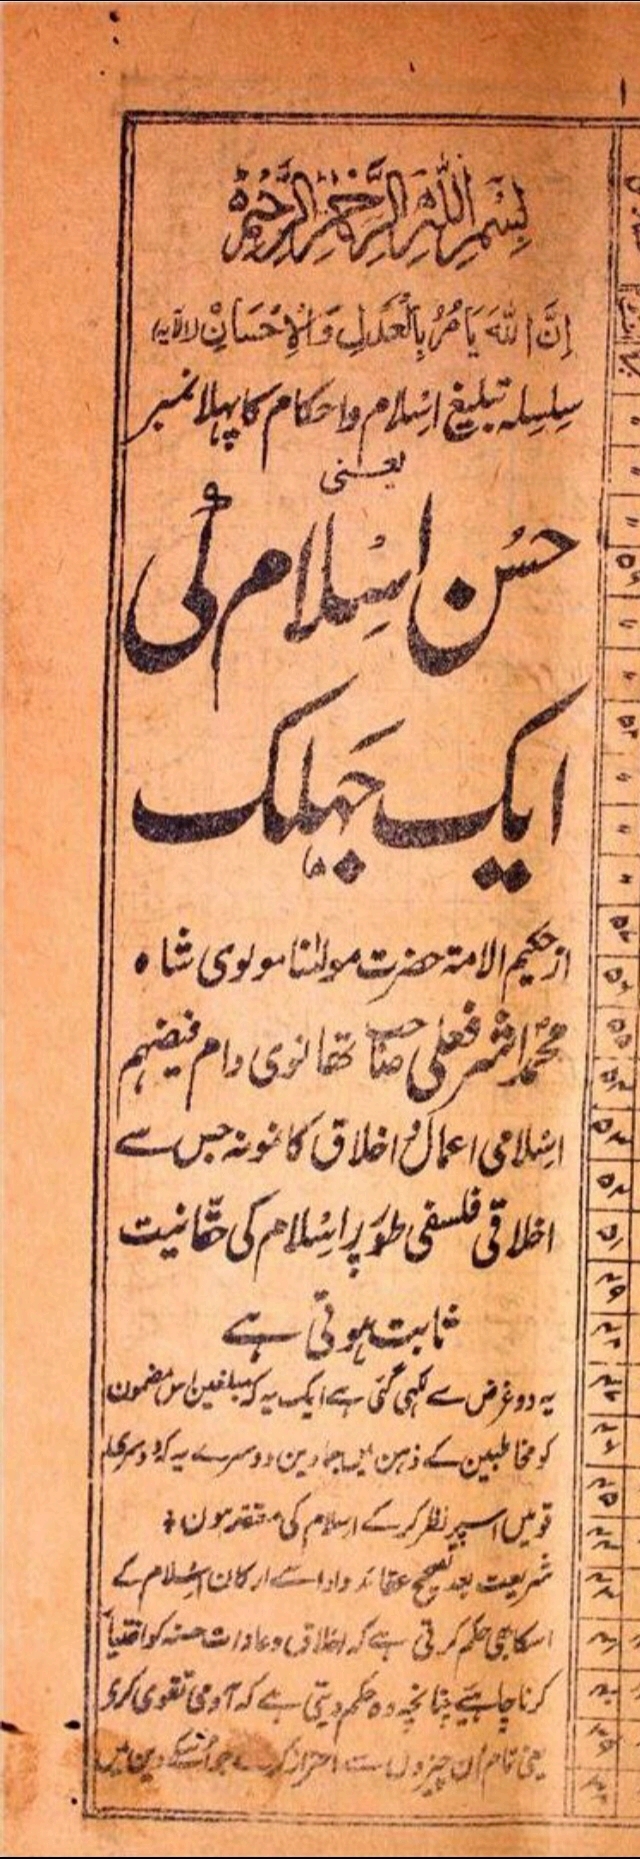 بِسْمِ اللهِ الرَّحْمٰنِ الرَّحِيْمِ
اِنَّ اللهَ يَاْمُرُ بِالْعَدْلِ وَالْاِحْسَانِ (الآیہ)
سلسلہ تبلیغ اسلام واحکام کا پہلا نمبر
یعنی
حسن اسلام کی
ایک جہلک
از حکیم الامۃ حضرت مولٰنا مولوی شاہ
محمد اشرفعلی صاحب تھانوی دام فیضہم
اسلامی اعمال و اخلاق کا نمونہ جس سے
اخلاقی فلسفی طور پر اسلام کی حقانیت
ثابت ہوتی ہے
یہ دو غرض سے لکہی گئی ہے ایک یہ کہ مبلغین اس مضمون
کو مخاطبین کے ذہن میں جمادین دوسرے یہ کہ دوسری
قومیں اسپر نظر کرکے اسلام کی معتقد ہون
شریعت بعد تصحیح عقائد و اداے ارکان اسلام کے
اسکا بھی حکم کرتی ہے کہ اخلاق وعادات حسنہ کو اختیار
کرنا چاہیے چنانچہ وہ حکم دیتی ہے کہ آدمی تقوی کرے
یعنی تمام ان چیزوں سے احتراز کرے جو اسکے دین میں